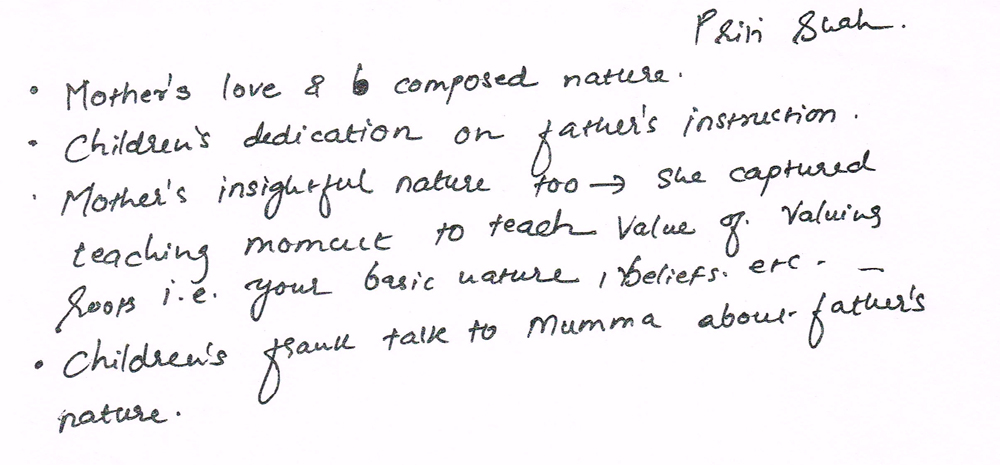 Priti Shah.
• Mother's love & composed nature.
• Children's dedication on father's instruction.
• Mother's insightful nature too → she captured
teaching moment to teach Value of. Valuing
Roots i.e. your basic nature, beliefs. etc. -
• Children's frank talk to Mumma about father's
nature.